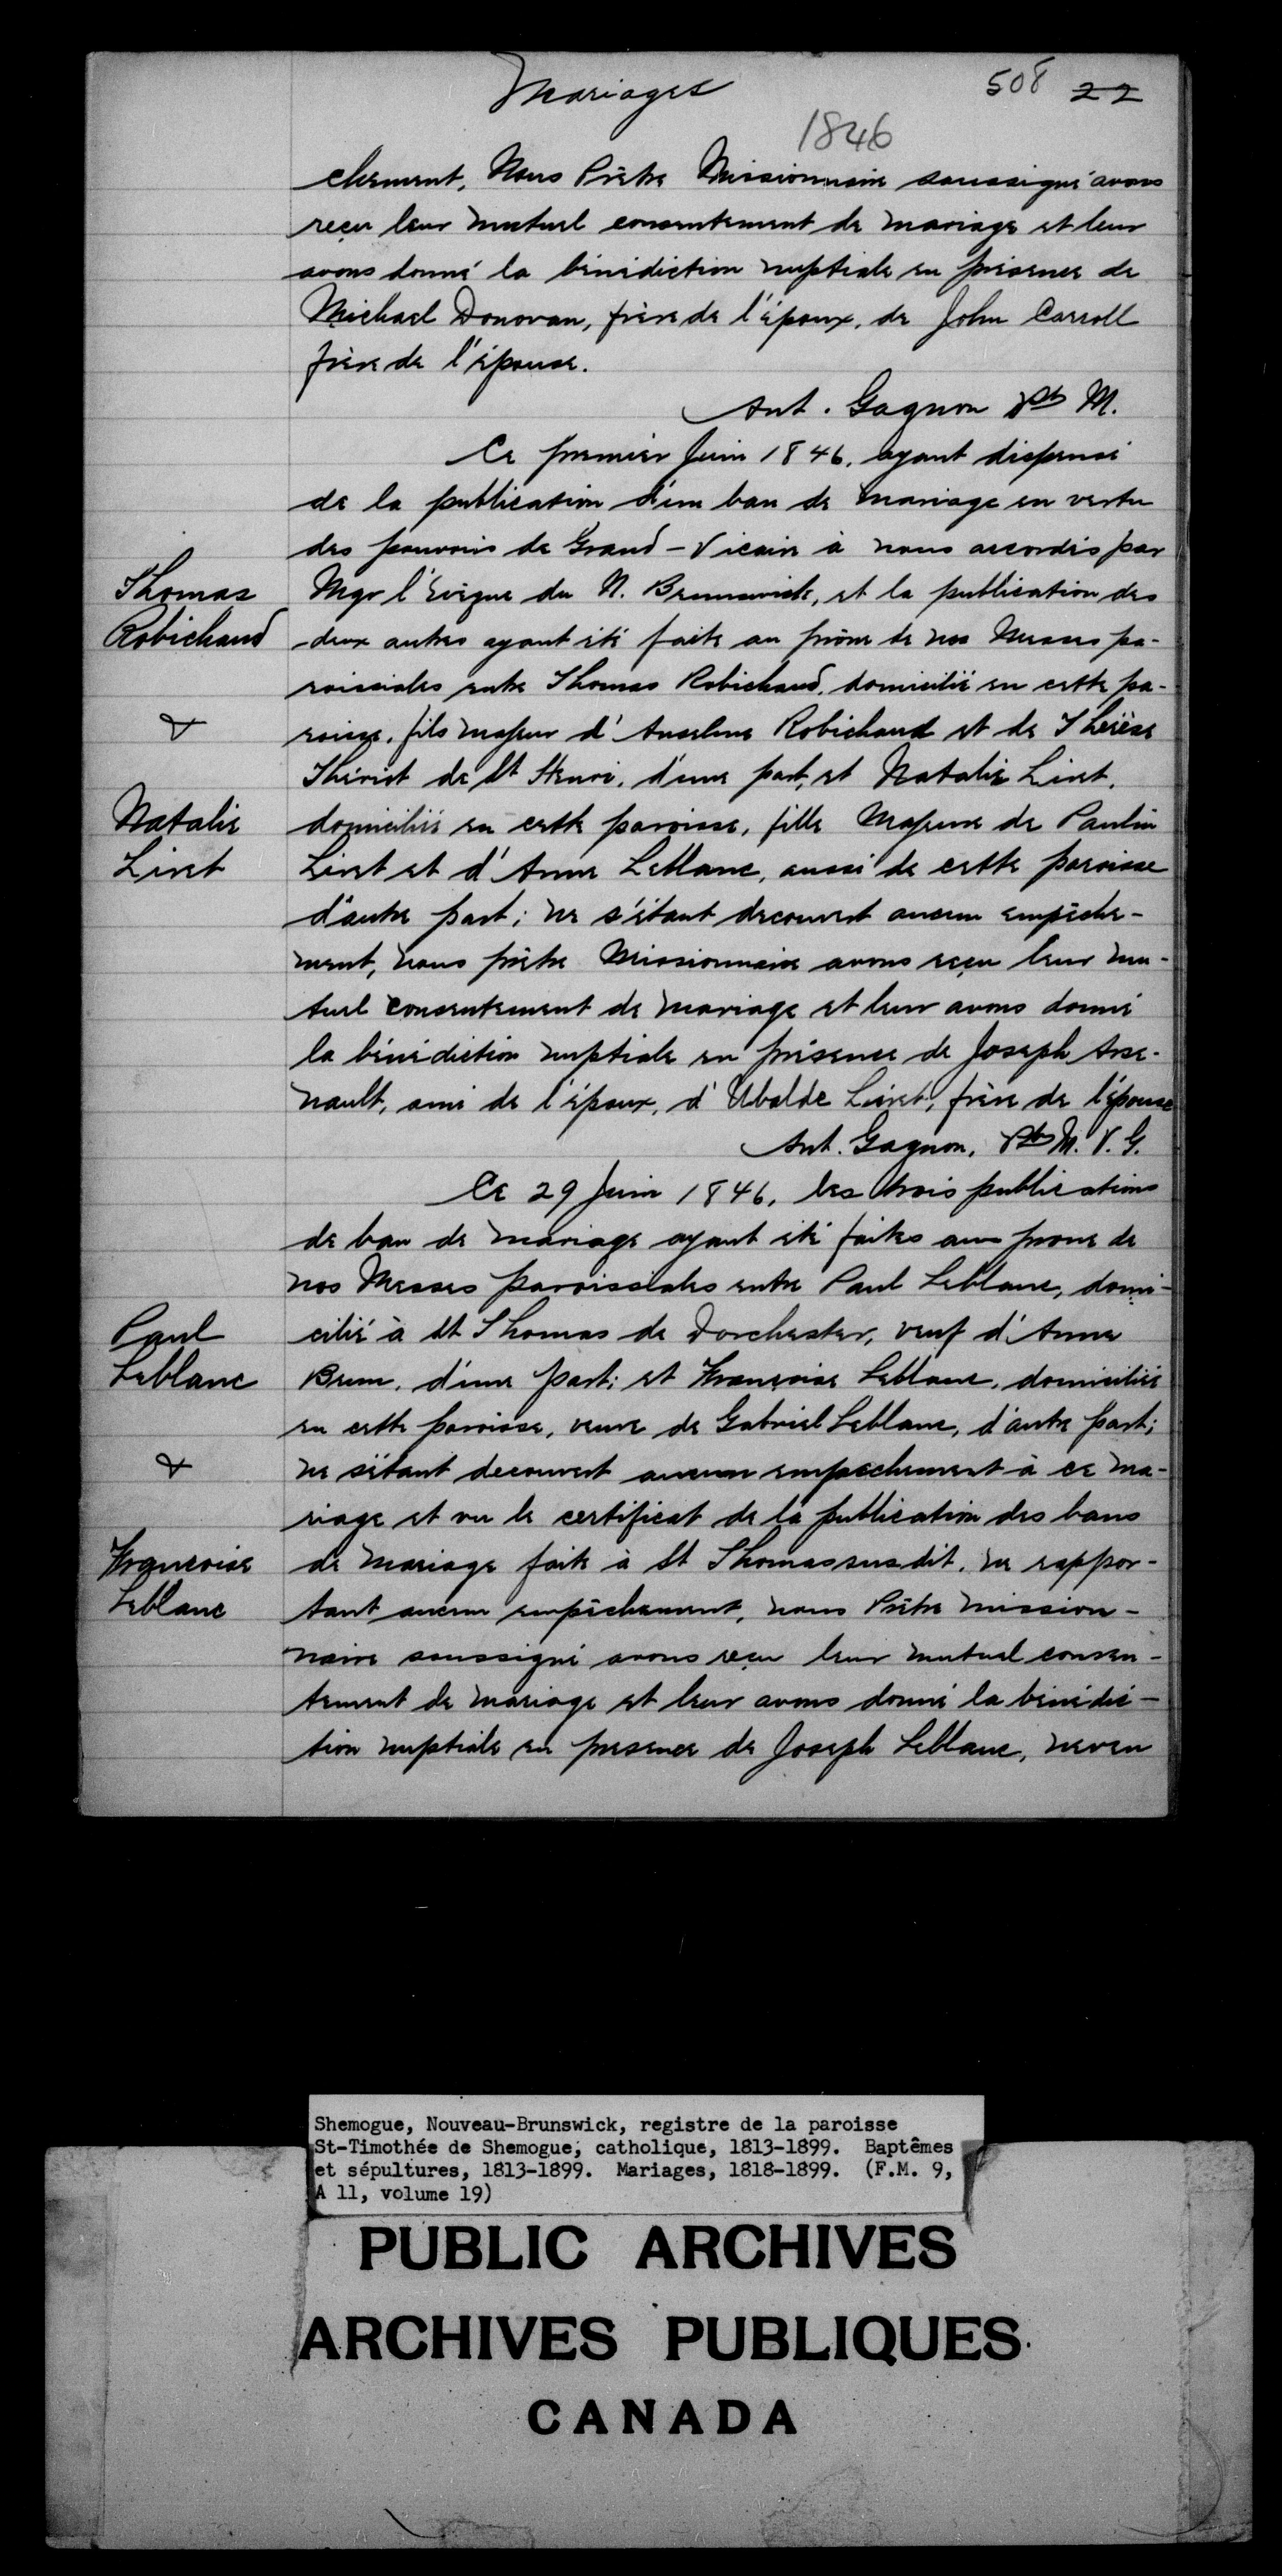 Mariages
508 22
1846
chement, Nous Prêtre Missionnaire soussigné avons
reçu leur mutuel consentement de mariage et leur
avons donné la bénédiction nuptiale en présence de
Michael Donovan, frère de l'époux, de John Carroll
frère de l'épouse.
Ant. Gagnon Pt M.
Ce premier Juin 1846, ayant dispensé
de la publication d'un ban de mariage en vertu
des pouvoirs de Grand-Vicaire à nous accordés par
Thomas
Robichaud
&
Natalie
Liret
Mgr l'Evêque du N. Brunswick, et la publication des
deux autres ayant été faite au prône de nos Messes pa-
roissiales entre Thomas Robichaud, domicilié en cette pa-
roisse, fils majeur d'Anselme Robichaud et de Thérèse
Thériot de St Henri, d'une part, et Natalie Liret,
domiciliée en cette paroisse, fille Majeure de Paulin
Liret et d'Anne Leblanc, aussi de cette paroisse
d'autre part; ne s'étant decouvert aucun empêche-
ment, nous prêtre Missionnaire avons reçu leur mu-
tuel consentement de mariage et leur avons donné
la bénédiction nuptiale en présence de Joseph Arse-
nault, ami de l'époux, d'Ubalde Liret, frère de l'épouse
Ant. Gagnon, Pt M. V. G.
Ce 29 Juin 1846, les trois publications
de ban de mariage ayant été faites au prone de
nos Messes paroissiales entre Paul Leblanc, domi-
Paul
Leblanc
&
Françoise
Leblanc
cilié à St Thomas de Dorchester, veuf d'Anne
Brun, d'une part; et Françoise Leblanc, domiciliée
en cette paroisse, veuve de Gabriel Leblanc, d'autre part;
ne s'étant decouvert aucun empechement à ce ma-
riage et vu le certificat de la publication des bans
de mariage faite à St Thomas susdit, ne rappor-
tant aucun empêchement, nous Prêtre mission-
naire soussigné avons reçu leur mutuel consen-
tement de mariage et leur avons donné la bénédic-
tion nuptiale en presence de Joseph Leblanc, neveu
Shemogue, Nouveau-Brunswick, registre de la paroisse
St-Timothée de Shemogue, catholique, 1813-1899. Baptêmes
et sépultures, 1813-1899. Mariages, 1818-1899. (F.M. 9,
A 11, volume 19)
PUBLIC ARCHIVES
ARCHIVES PUBLIQUES
CANADA